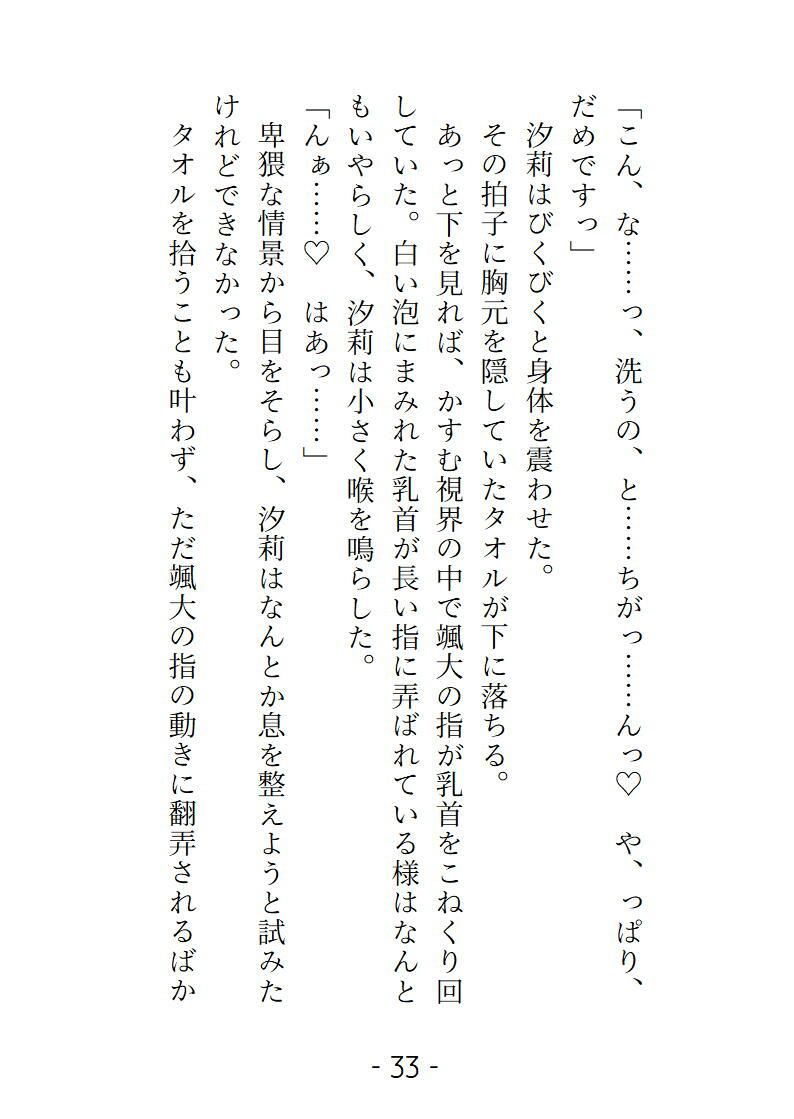 「こん、な……っ、洗うの、と……ちがっ……んっ♡　や、っぱり、
だめですっ」
　汐莉はびくびくと身体を震わせた。
　その拍子に胸元を隠していたタオルが下に落ちる。
　あっと下を見れば、かすむ視界の中で颯大の指が乳首をこねくり回
していた。白い泡にまみれた乳首が長い指に弄ばれている様はなんと
もいやらしく、汐莉は小さく喉を鳴らした。
「んぁ……♡　はあっ……」
　卑猥な情景から目をそらし、汐莉はなんとか息を整えようと試みた
けれどできなかった。
　タオルを拾うことも叶わず、ただ颯大の指の動きに翻弄されるばか
- 33 -